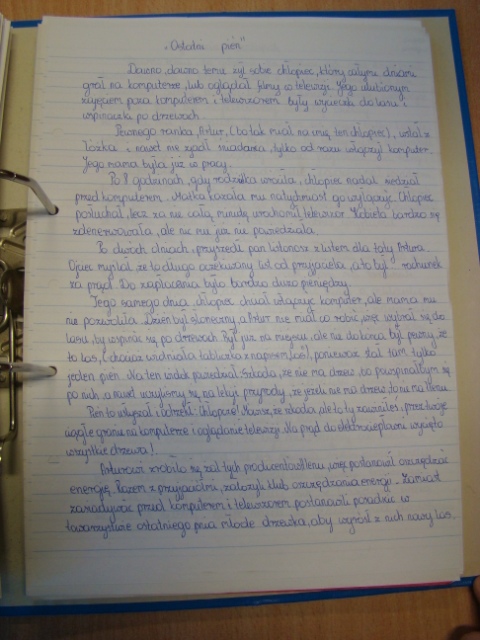 "Ostatni pień"
Dawno, dawno temu żył sobie chłopiec, który całymi dniami
grał na komputerze, lub oglądał filmy w telewizji. Jego ulubionym
zajęciem poza komputerem i telewizorem były wycieczki do lasu i
wspinaczka po drzewach.
Pewnego ranka, Artur, (bo tak miał na imię ten chłopiec), wstał z
łóżka i nawet nie zjadł śniadania, tylko od razu włączył komputer.
Jego mama była już w pracy.
Po 8 godzinach, gdy rodzicielka wróciła, chłopiec nadal siedział
przed komputerem. Matka kazała mu natychmiast go wyłączyć. Chłopiec
posłuchał, lecz za nie całą minutę uruchomił telewizor. Kobieta bardzo się
zdenerwowała, ale nic mu już nie powiedziała.
Po dwóch dniach, przyszedł pan listonosz z listem dla taty Artura.
Ojciec myślał, że to długo oczekiwany list od przyjaciela, a to był rachunek
za prąd. Do zapłacenia było bardzo dużo pieniędzy.
Tego samego dnia, chłopiec chciał włączyć komputer, ale mama mu
nie pozwoliła. Dzień był słoneczny, a Artur nie miał co robić, więc wybrał się do
lasu, by wspinać się po drzewach. Był już na miejscu, ale do końca był pewny, że
to las, (chociaż widniała tabliczka z napisem „las"), ponieważ stał tam tylko
jeden pień. Na ten widok powiedział: Szkoda, że nie ma drzew, bo powspinałbym się
po nich, a nawet uczyliśmy się na lekcji przyrody, że jeżeli nie ma drzew, to nie ma tlenu.
Pień to usłyszał i odrzekł: Chłopcze! Mówisz, że szkoda, ale to ty zawiniłeś, przez twoje
ciągłe granie na komputerze i oglądanie telewizji. Na prąd do elektrociepłowni wycięto
wszystkie drzewa!
Arturowi zrobiło się żal tych producentów tlenu, więc postanowił oszczędzać
energię. Razem z przyjaciółmi, założyli klub oszczędzania energii. Zamiast
zasiadywać przed komputerem i telewizorem postanowili posadzić w
towarzystwie ostatniego pnia młode drzewka, aby wyrósł z nich nowy las.